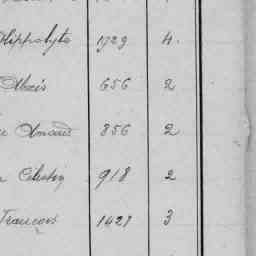 Hippolyte 1729 4.
Alexis 656 2
Amand 856 2
Célestin 918 2
François 1421 3